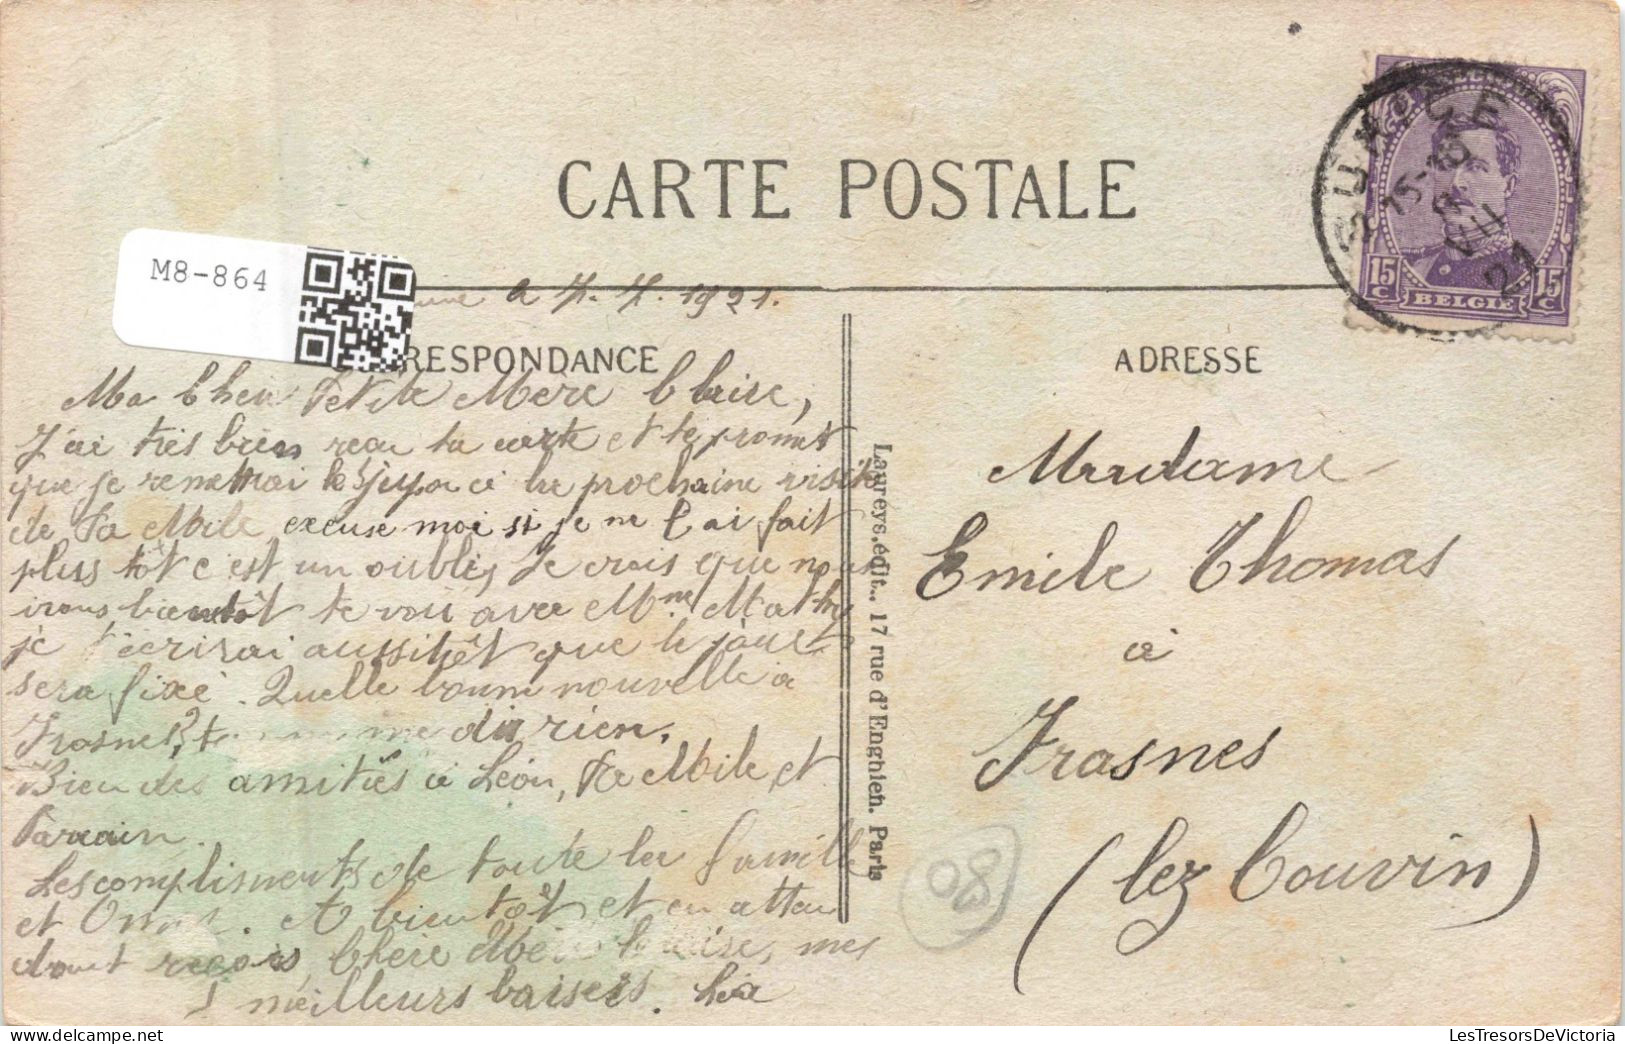 CARTE POSTALE
M8-864
a 7. 7. 1921.
RESPONDANCE
ADRESSE
15 C BELGIE 15 C
15-16
VII
21
Ma Chère Petite Mère Claire,
J'ai très bien reçu ta carte et te promet
que je remettrai le à la prochaine visite
de Ta Mile excuse moi si je ne l'ai fait
plus tôt c'est un oubli, Je crois que nous
irons bientôt te voir avec Mme Mathy
je t'écrirai aussitôt que le jour
sera fixé. Quelle bonne nouvelle a
Frasnes, t me dis rien.
Bien des amitiés à Léon, Ta Mile et
Parrain.
Les compliments de toute la famille
et. A bientôt et en atten
dant reçois Chère Mère Claire, mes
meilleurs baisers. Léa
Laureys. édit.. 17 rue d'Enghien. Paris
Madame
Emile Thomas
à
Frasnes
(lez Couvin)
80
LesTresorsDeVictoria